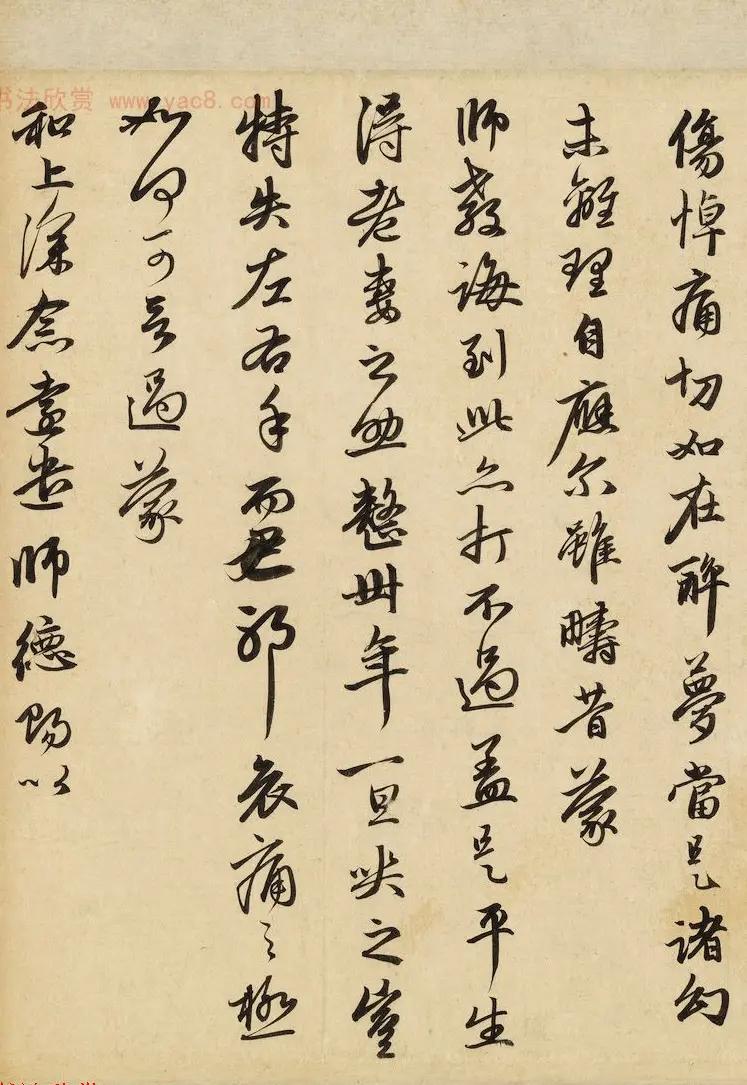 书法欣赏 www.yac8.com
傷悼痛切如在醉夢當是諸幻
未離理自應尔雖疇昔蒙
師教誨到此亦打不過蓋是平生
得老妻之助整卅年一旦哭之豈
特失左右手而已耶哀痛之極
如何可言過蒙
和上深念遠遣師德賜以